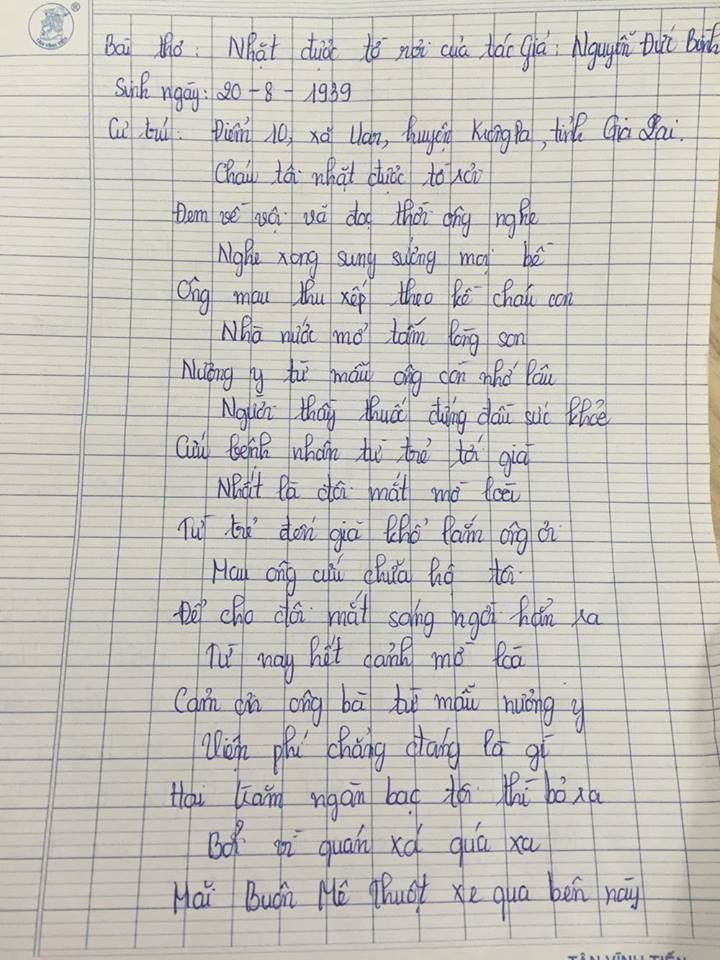 TÂN VĨNH TIẾN
Bài thơ: Nhặt được tờ rơi của tác giả: Nguyễn Đức Bình
Sinh ngày: 20-8-1939
Cư trú: Điểm 10, xã Uar, huyện KrôngPa, tỉnh Gia Lai.
Cháu tôi nhặt được tờ rơi
Đem về vội vã đọc thời ông nghe
Nghe xong sung sướng mọi bề
Ông mau thu xếp theo kề cháu con
Nhà nước mở tấm lòng son
Nương y từ mẫu ông còn nhớ lâu
Người thầy thuốc đứng đầu sức khỏe
Cứu bệnh nhân từ trẻ tới già
Nhất là đôi mắt mờ loà
Từ trẻ đến già khổ lắm ông ơi
Mau ông cứu chữa hộ tôi
Để cho đôi mắt sáng ngời hẳn ra
Từ nay hết cảnh mờ loà
Cảm ơn ông bà từ mẫu nương y
Viện phí chẳng đáng là gì
Hai trăm ngàn bạc tôi thì bỏ ra
Bởi vì quán xá quá xa
Mãi Buôn Mê Thuột xe qua bên này
TÂN VĨNH TIẾN